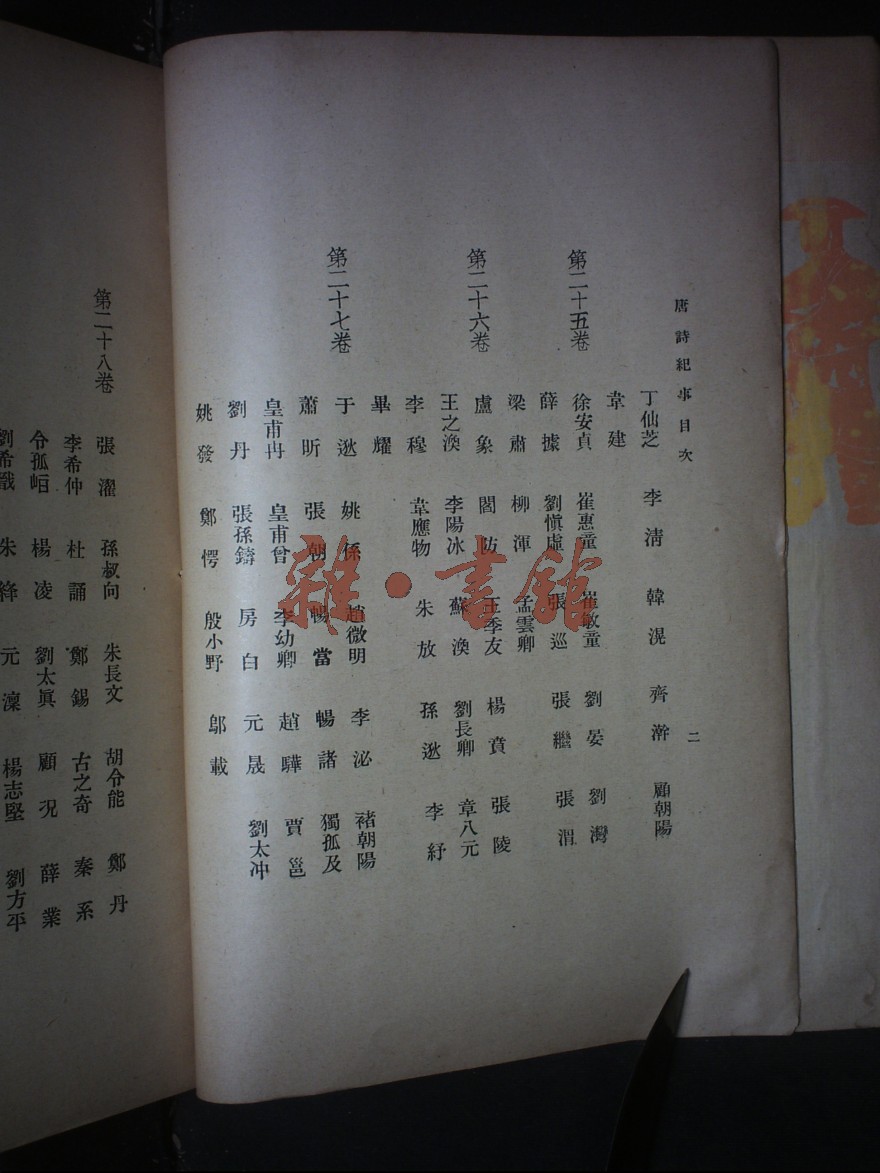 唐詩紀事目次
二
丁仙芝 李清 韓滉 齊澣 顧朝陽
韋建
第二十五卷
徐安貞 崔惠童 崔敏童 劉晏 劉灣
薛據 劉愼虛 張巡 張繼 張渭
梁肅 柳渾 孟雲卿
第二十六卷
盧象 閻防 王季友 楊賁 張陵
王之渙 李陽冰 蘇渙 劉長卿 章八元
李穆 韋應物 朱放 孫逖 李紓
畢耀
第二十七卷
于逖 姚係 趙微明 李泌 褚朝陽
蕭昕 張朝 暢當 暢諸 獨孤及
皇甫冉 皇甫曾 李幼卿 趙驊 賈邕
劉丹 張孫鑄 房白 元晟 劉太冲
姚發 鄭愕 殷小野 鄔載
第二十八卷
張濯 孫叔向 朱長文 胡令能 鄭丹
李希仲 杜誦 鄭錫 古之奇 秦系
令孤峘 楊凌 劉太眞 顧況 薛業
劉希戩 朱絳 元凜 楊志堅 劉方平
雜·書館